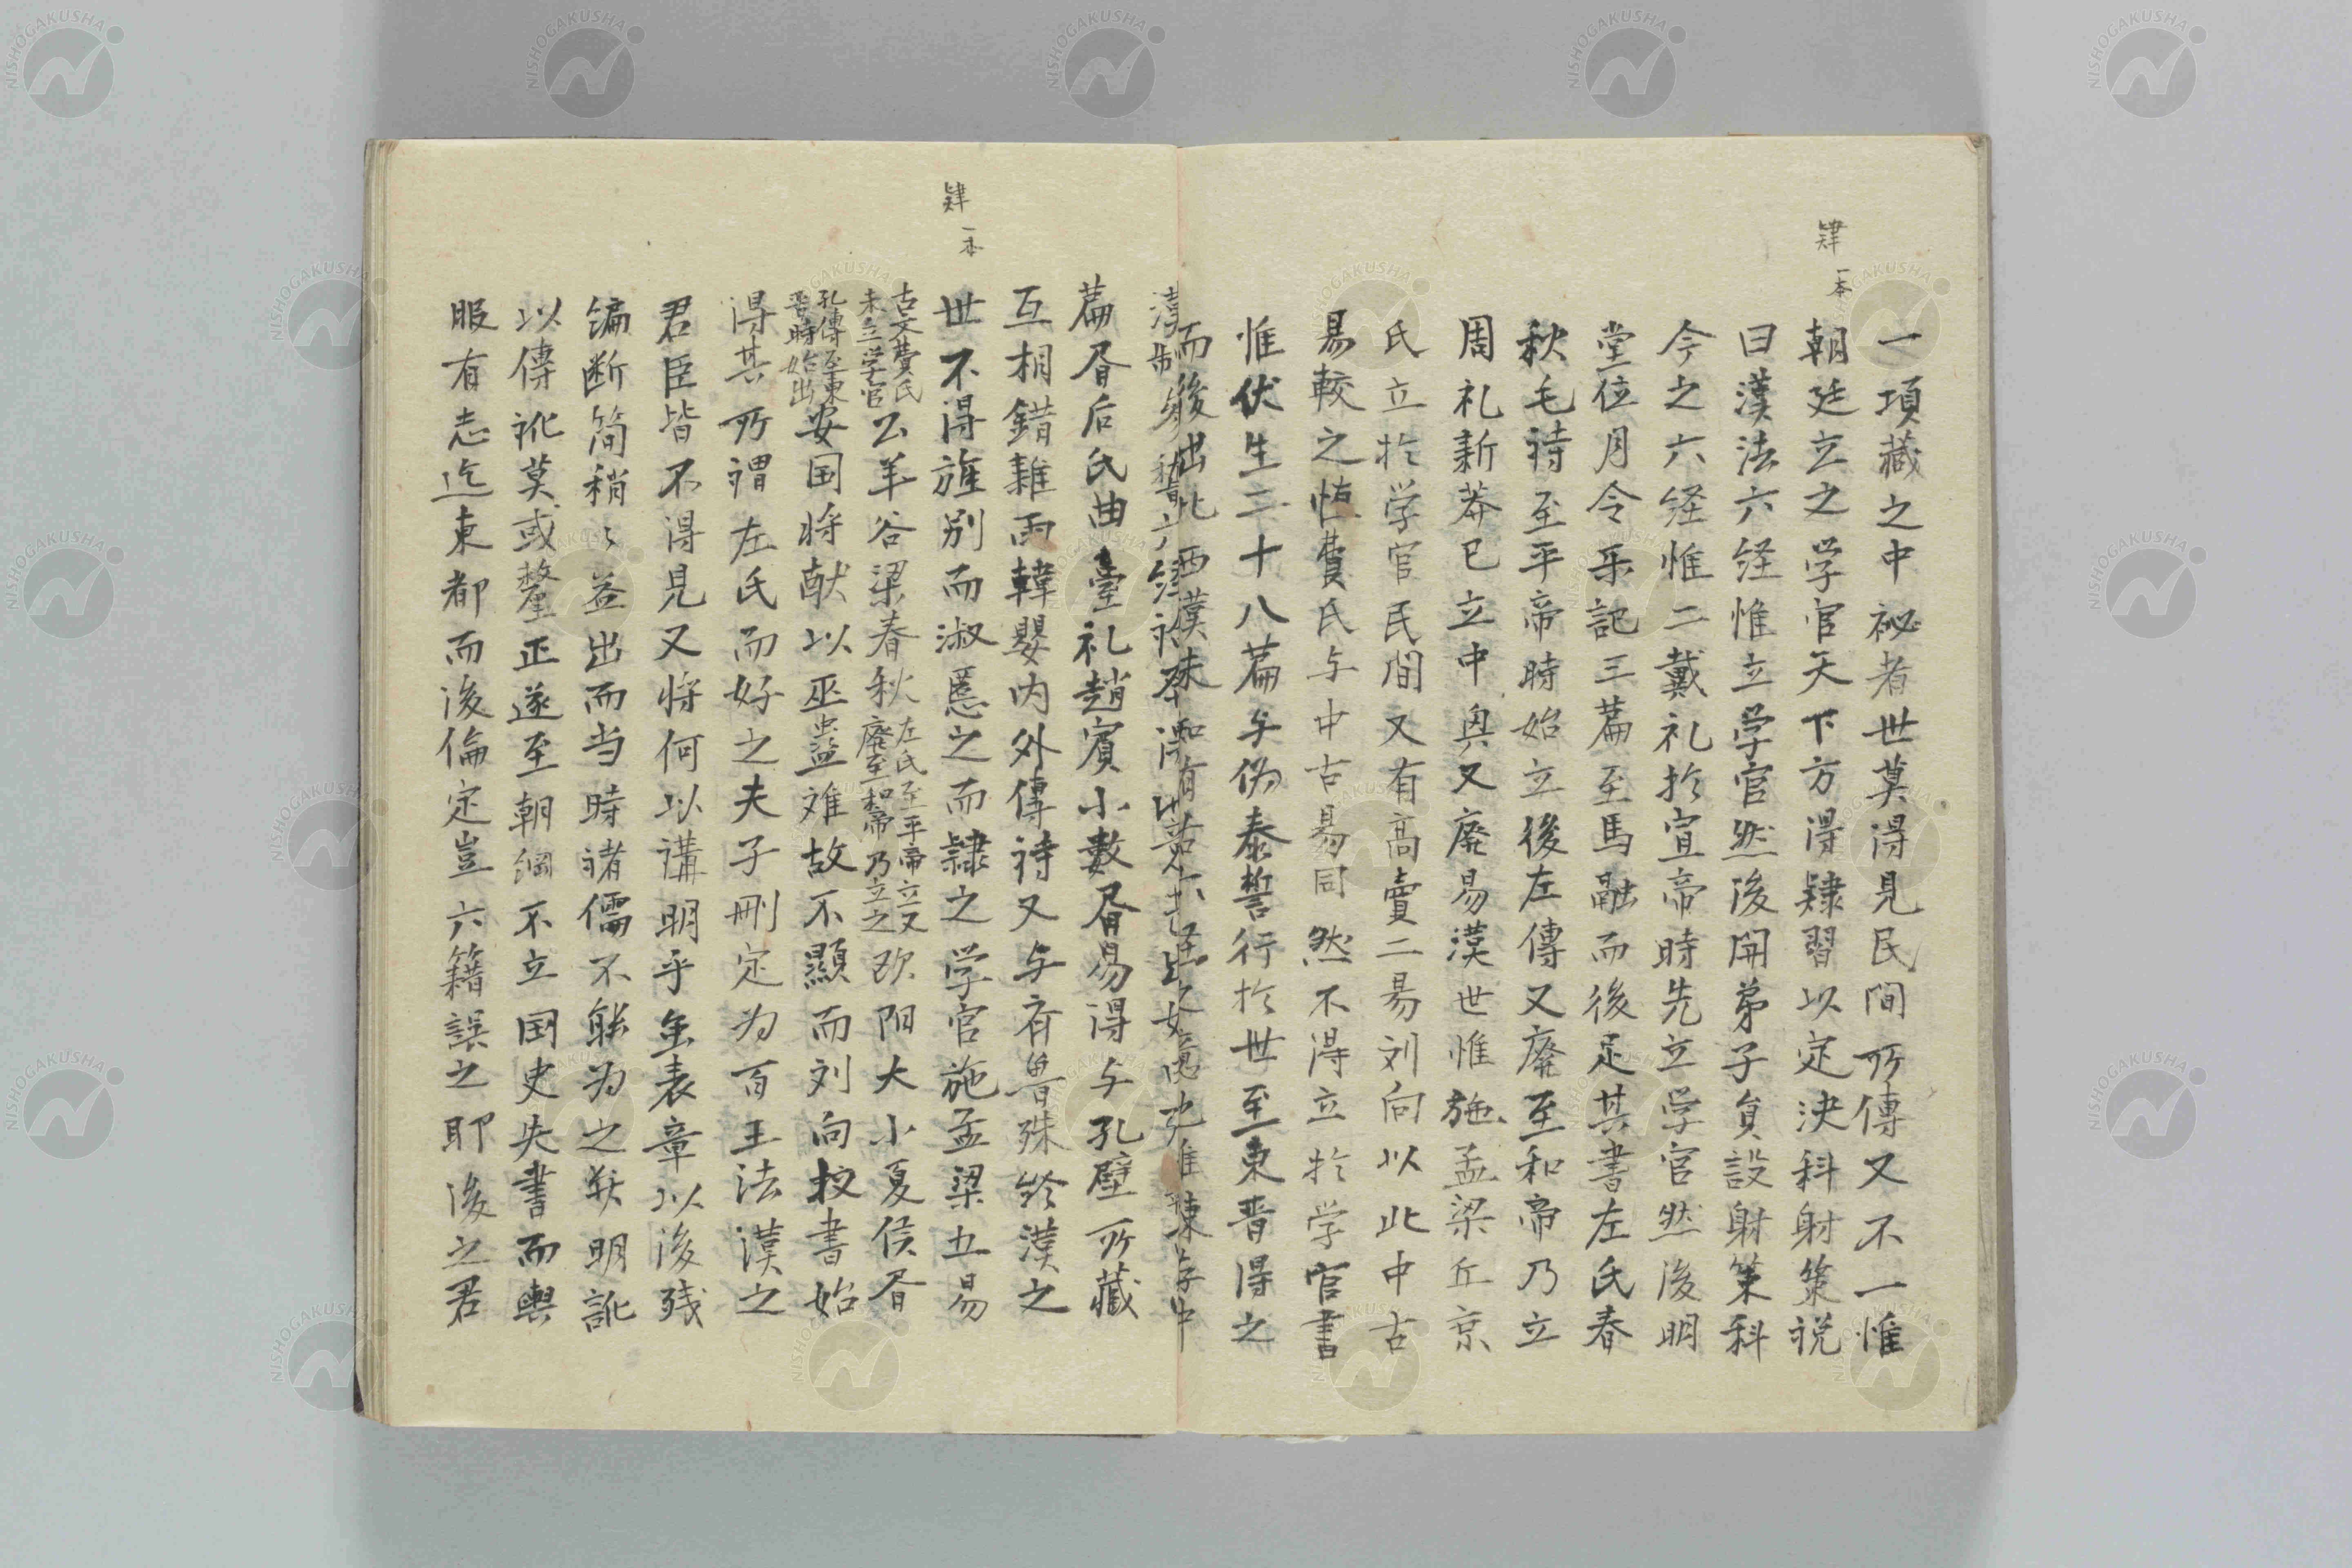 肄 一本
一項藏之中祕者世莫得見民間所傳又不一惟
朝廷立之学官天下方得肄習以定決科射策説
曰漢法六経惟立学官然後開弟子負設射策科
今之六経惟二戴礼於宣帝時先立学官然後明
堂位月令乐記三篇至馬融而後足其書左氏春
秋毛诗至平帝時始立後左傳又廃至和帝乃立
周礼新莽已立中興又廃易漢世惟施孟梁丘京
氏立於学官民間又有高費二易刘向以此中古
易較之惟費氏与中古易同然不得立於学官書
惟伏生二十八篇与伪泰誓行於世至東晋得之
而後出此西漢
肄 一本
篇胥后氏曲臺礼趙賓小數胥易得与孔壁所藏
互相錯雜雨韓嬰内外傳诗又与斉魯殊終漢之
世不得旌别而淑慝之而隷之学官施孟梁五易
古文費氏
未立学官
公羊谷梁春秋
左氏至平帝立又
廢至和帝乃立之
欧阳大小夏侯胥
孔傳至東
晋時始出
安国将献以巫蠱难故不顯而刘向校書始
得其所谓左氏而好之夫子刪定为百王法漢之
君臣皆不得見又将何以講明乎虽表章以後残
编断简稍〻益出而当時诸儒不能为之発明訛
以傳讹莫或釐正遂至朝綱不立国史失書而輿
服有志迄東都而後倫定豈六籍誤之耶後之君